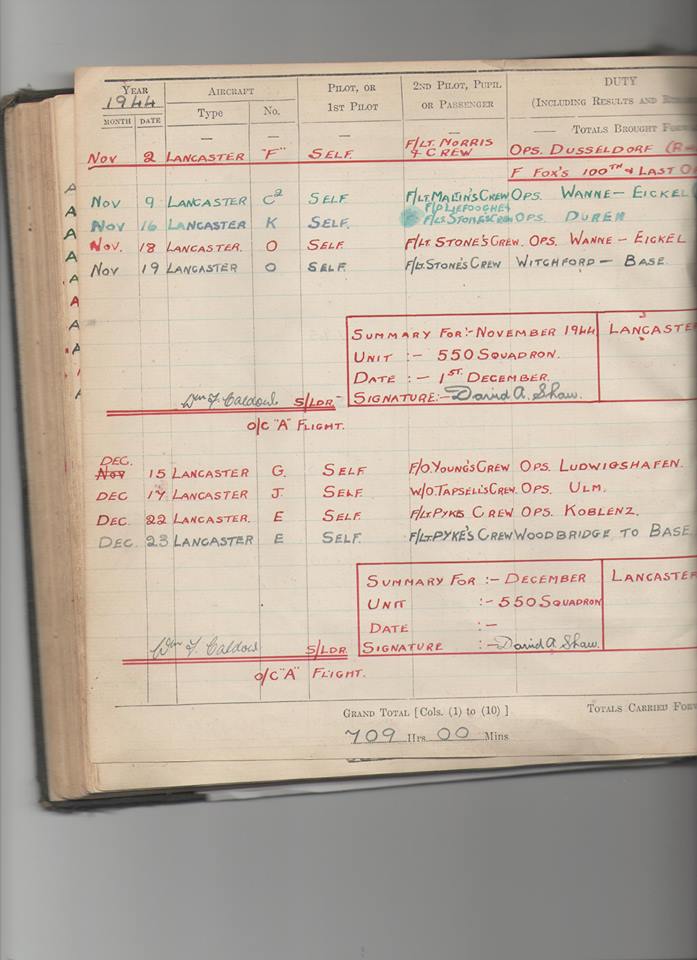 YEAR AIRCRAFT PILOT, OR 2ND PILOT, PUPIL DUTY
1944 1ST PILOT OR PASSENGER (INCLUDING RESULTS AND
MONTH DATE Type No.
— — — — —— TOTALS BROUGHT
NOV 2 LANCASTER "F" SELF. F/LT. MORRIS & CREW OPS. DUSSELDORF
F FOX'S 100TH & LAST
NOV 9 LANCASTER C2 SELF F/LT MALIN'S CREW OPS. WANNE-EICKEL
NOV 16 LANCASTER K SELF. F/LT STONE'S CREW OPS. DUREN
NOV. 18 LANCASTER. O SELF F/LT. STONE'S CREW. OPS. WANNE-EICKEL
NOV 19 LANCASTER O SELF. F/LT. STONE'S CREW WITCHFORD - BASE.
SUMMARY FOR:- NOVEMBER 1944 LANCASTER
UNIT :- 550 SQUADRON.
DATE :- 1ST. DECEMBER.
SIGNATURE:- David A. Shaw.
Wm F. Caldow S/LDR.-
O/C "A" FLIGHT.
DEC.
NOV 15 LANCASTER G. SELF F/O. YOUNG'S CREW OPS. LUDWIGSHAFEN.
DEC 17 LANCASTER J. SELF. W/O. TAPSELL'S CREW. OPS. ULM.
DEC. 22 LANCASTER. E SELF. F/LT PYKE'S CREW OPS. KOBLENZ.
DEC. 23 LANCASTER E SELF. F/LT. PYKE'S CREW WOODBRIDGE TO BASE.
SUMMARY FOR :- DECEMBER LANCASTER
UNIT :- 550 SQUADRON
DATE :-
SIGNATURE :- David A. Shaw.
Wm F. Caldow S/LDR.
O/C "A" FLIGHT.
GRAND TOTAL [Cols. (1) to (10) ] TOTALS CARRIED
709 Hrs. 00 Mins